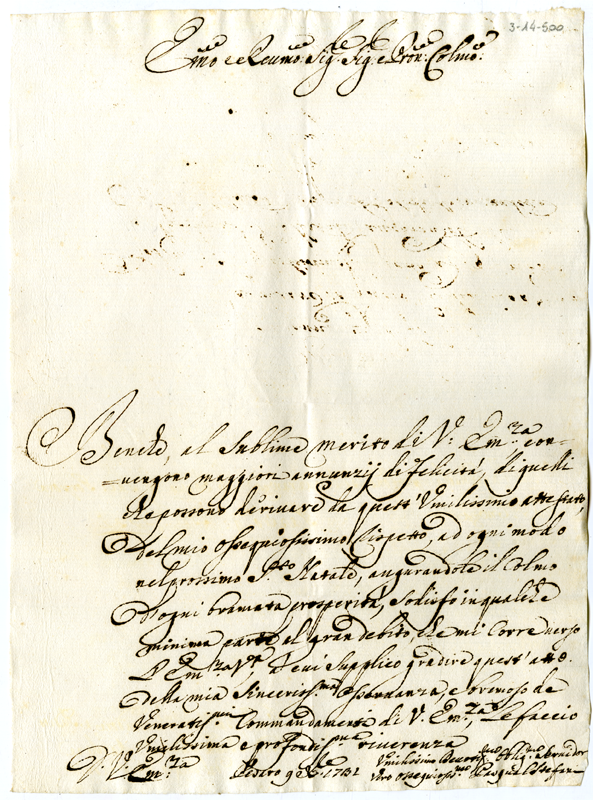 3-14-500
Em̃o e Reumo: Sig.re Sig.r e Pron: Colmo:
Benche, al Sublime merito di V: Em.za con-
=uengono maggiori annunzij di felicità, di quelli
che possono deriuare da quest'Vmilissimo attestato,
del mio ossequiosissimo Rispetto, ad ogni modo
nel prossimo S.to Natale, augurandole il Colmo
d'ogni bramata prosperità, sodisfo in qualche
minima parte al gran debito che mi Corre uerso
l'Em.za V.ra, a cui supplico gradire quest'atto
della mia Sinceriss.ma osseruanza, e bramoso de
Veneratis.mi Commandamenti di V. Em.za Le faccio
Vmilissima e profondis.ma riuerenza
Di V: Em.za
1731
Vmilissimo Deuotis.mo Oblig.mo Seruidor
Vero ossequiosis.mo